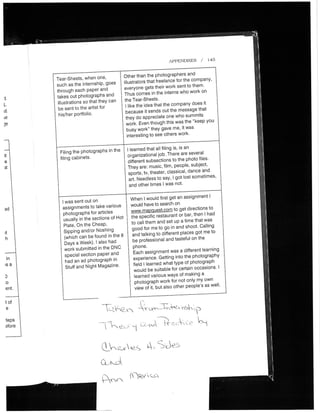 APPENDIXES / 145
Tear-Sheets, when one,
such as the internship, goes
through each paper and
takes out photographs and
illustrations so that they can
be sent to the artist for
his/her portfolio.
Other than the photographers and
illustrators that freelance for the company,
everyone gets their work sent to them.
Thus comes in the interns who work on
the Tear-Sheets.
I like the idea that the company does it
because it sends out the message that
they do appreciate one who summits
work. Even though this was the "keep you
busy work" they gave me, it was
interesting to see others work.
Filing the photographs in the
filing cabinets.
I learned that all filing is, is an
organizational job. There are several
different subsections to the photo files.
They are: music, film, people, subject,
sports, tv, theater, classical, dance and
art. Needless to say, I got lost sometimes,
and other times I was not.
I was sent out on
assignments to take various
photographs for articles
usually in the sections of Hot
Plate, On the Cheap,
Sipping and/or Noshing
(which can be found in the 8
Days a Week). I also had
work submitted in the DNC
special section paper and
had an ad photograph in
Stuff and Night Magazine.
When I would first get an assignment I
would have to search on
www.mapquest.com to get directions to
the specific restaurant or bar, then I had
to call them and set up a time that was
good for me to go in and shoot. Calling
and talking to different places got me to
be professional and tasteful on the
phone.
Each assignment was a different learning
experience. Getting into the photography
field I learned what type of photograph
would be suitable for certain occasions. I
learned various ways of making a
photograph work for not only my own
view of it, but also other people's as well.
Taken from Internship
Theory and Practice by
Charles H. Sides
and
Ann Mrvica